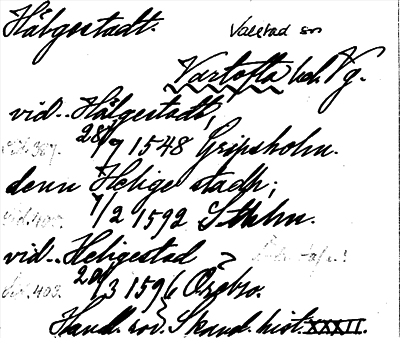 Hälgestadt. Valstad sn
Vartofta hd. Vg.
vid.. Hälgestadt,
28/7 1548 Gripsholm.
denn Helige stadh;
7/2 1592 Sthlm.
vid.. Heligestad
20/3 1596 Örebro.
Handl. rör. Skand. hist. XXXII.